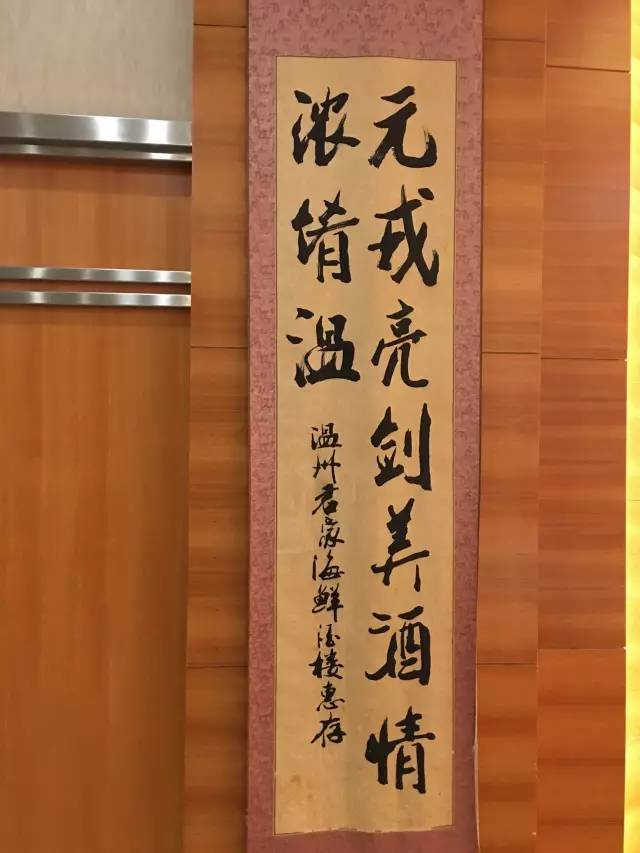 元戎亮剑美酒情
浓情温
温州君豪海鲜酒楼惠存